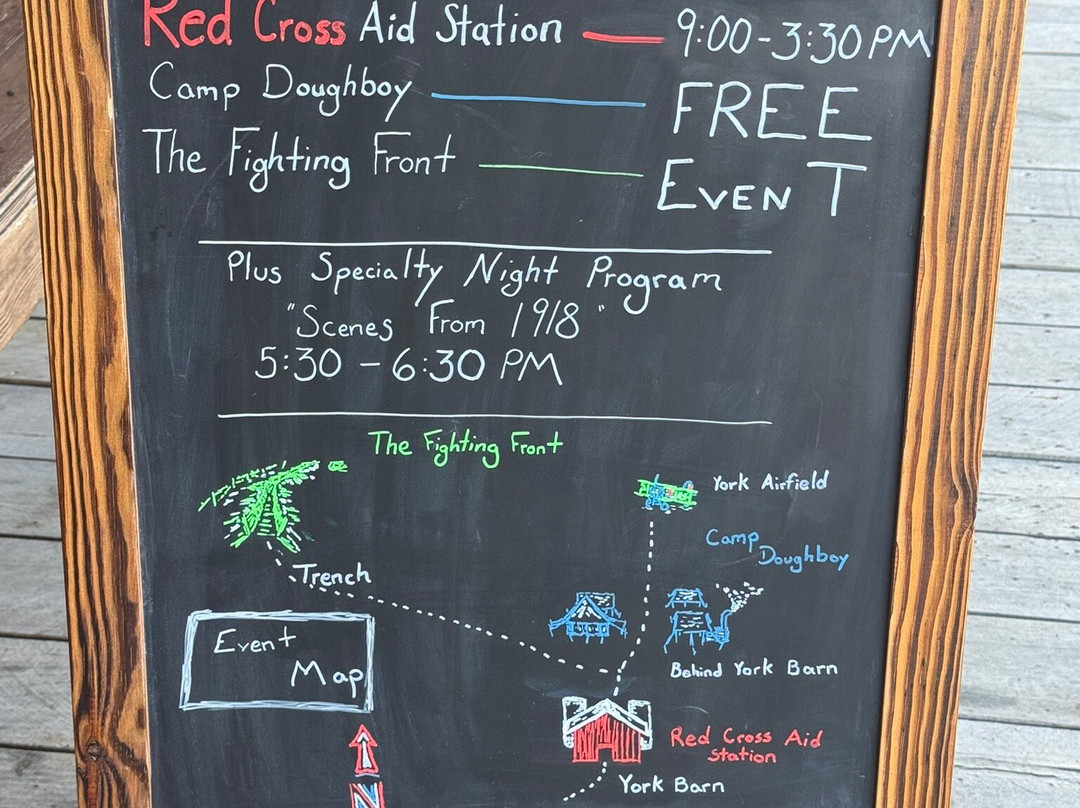 Red Cross Aid Station — 9:00-3:30 PM
Camp Doughboy — FREE
The Fighting Front — EVENT
Plus Specialty Night Program
"Scenes From 1918"
5:30 - 6:30 PM
The Fighting Front
York Airfield
Camp
Doughboy
Trench
Event
Map
Behind York Barn
Red Cross Aid
Station
York Barn
N